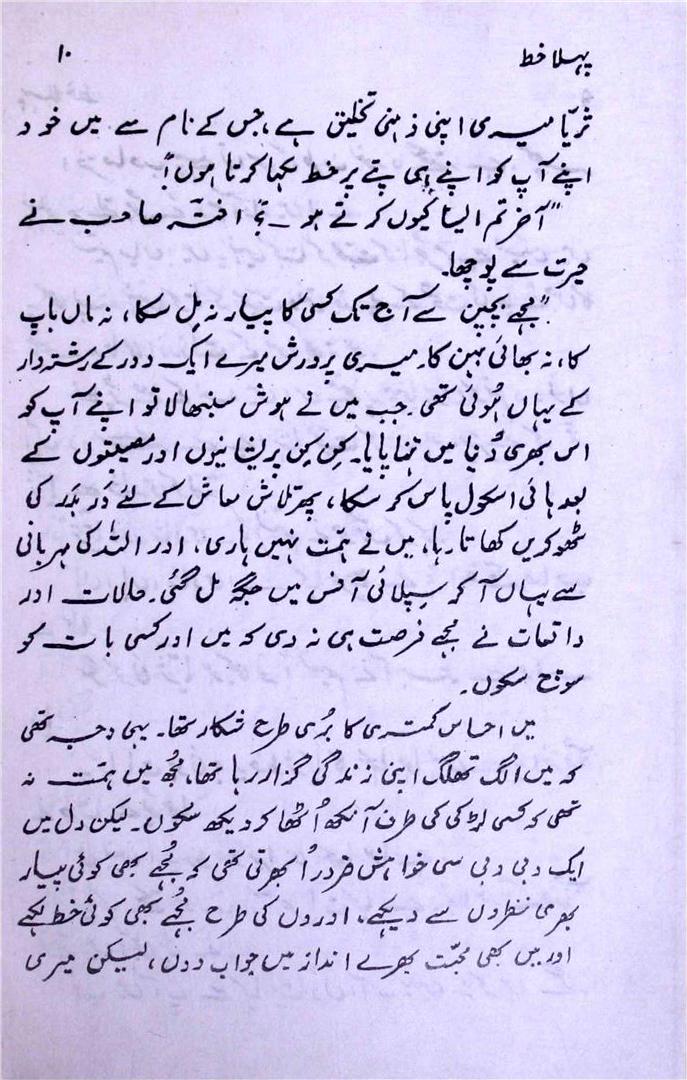 پہلا خط ۱۰
ثریّا میری اپنی ذہنی تخلیق ہے، جس کے نام سے میں خود
اپنے آپ کو اپنے ہی پتے پر خط لکھا کرتا ہوں!"
"آخر تم ایسا کیوں کرتے ہو ـ؟" افسر صاحب نے
حیرت سے پوچھا۔
"مجھے بچپن سے آج تک کسی کا پیار نہ مِل سکا، نہ ماں باپ
کا، نہ بھائی بہن کا۔ میری پرورش میرے ایک دور کے رشتہ دار
کے یہاں ہُوئی تھی۔ جب میں نے ہوش سنبھالا تو اپنے آپ کو
اس بھری دُنیا میں تنہا پایا۔ کِن کِن پریشانیوں اور مصیبتوں کے
بعد ہائی اسکول پاس کر سکا، پھر تلاش معاش کے لئے دَر بدَر کی
ٹھوکریں کھاتا رہا، میں نے ہمّت نہیں ہاری، اور اللہ کی مہربانی
سے یہاں آ کر سپلائی آفس میں جگہ مل گئی۔ حالات اور
واقعات نے مجھے فرصت ہی نہ دی کہ میں اور کسی بات کو
سوچ سکوں۔
میں احساس کمتری کا بُری طرح شکار تھا۔ یہی وجہ تھی
کہ میں الگ تھلگ اپنی زندگی گزار رہا تھا، مجُھ میں ہمّت نہ
تھی کہ کسی لڑکی کی طرف آنکھ اُٹھا کر دیکھ سکوں۔ لیکن دل میں
ایک دبی دبی سی خواہش ضرور اُبھرتی تھی کہ مجُھے بھی کوئی پیار
بھری نظروں سے دیکھے، اوروں کی طرح مجُھے بھی کوئی خط لکھے
اور میں بھی محبّت بھرے انداز میں جواب دوں، لیکن میری